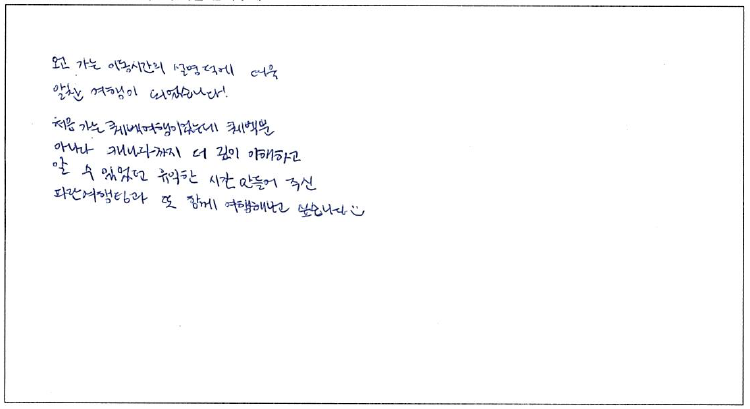 오고 가는 이동시간의 설명 덕에 더욱
알찬 여행이 되었습니다!
처음 가는 퀘백여행이었는데 퀘백뿐
아니라 캐나다까지 더 깊이 이해하고
알 수 있었던 유익한 시간 만들어 주신
파란여행팀과 또 함께 여행해보고 싶습니다